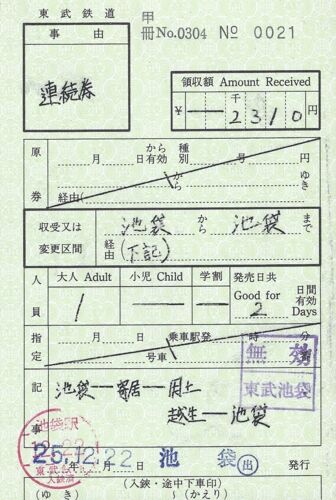 東武鉄道
甲
冊 No.0304 № 0021
事由
連続券
領収額 Amount Received
千
¥ ー 2310 円
原券
から 種
月 日有効 別 号 円
から ゆき
経由
収受又は
変更区間
池袋 から 池袋 まで
経由 (下記)
人員
大人 Adult 小児 Child 学割
1 ー ー
発売日共
Good for 2 日間有効 Days
指定
月 日 乗車駅発 時 分
号車
無効
東武池袋
記事
池袋ー寄居ー
越生ー池袋
池袋駅
25.12.22 池袋 出
東武
入鋏済
年 月 日 発行
(入鋏・途中下車印)
(ゆき) (かえり)